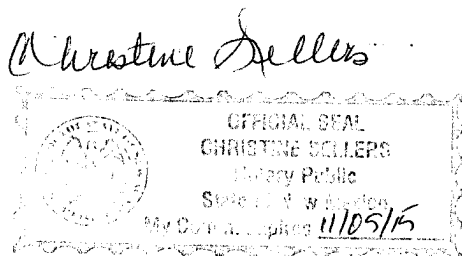 Christine Sellers
OFFICIAL SEAL
CHRISTINE SELLERS
Notary Public
State of New Mexico
My Comm. Expires 11/05/15